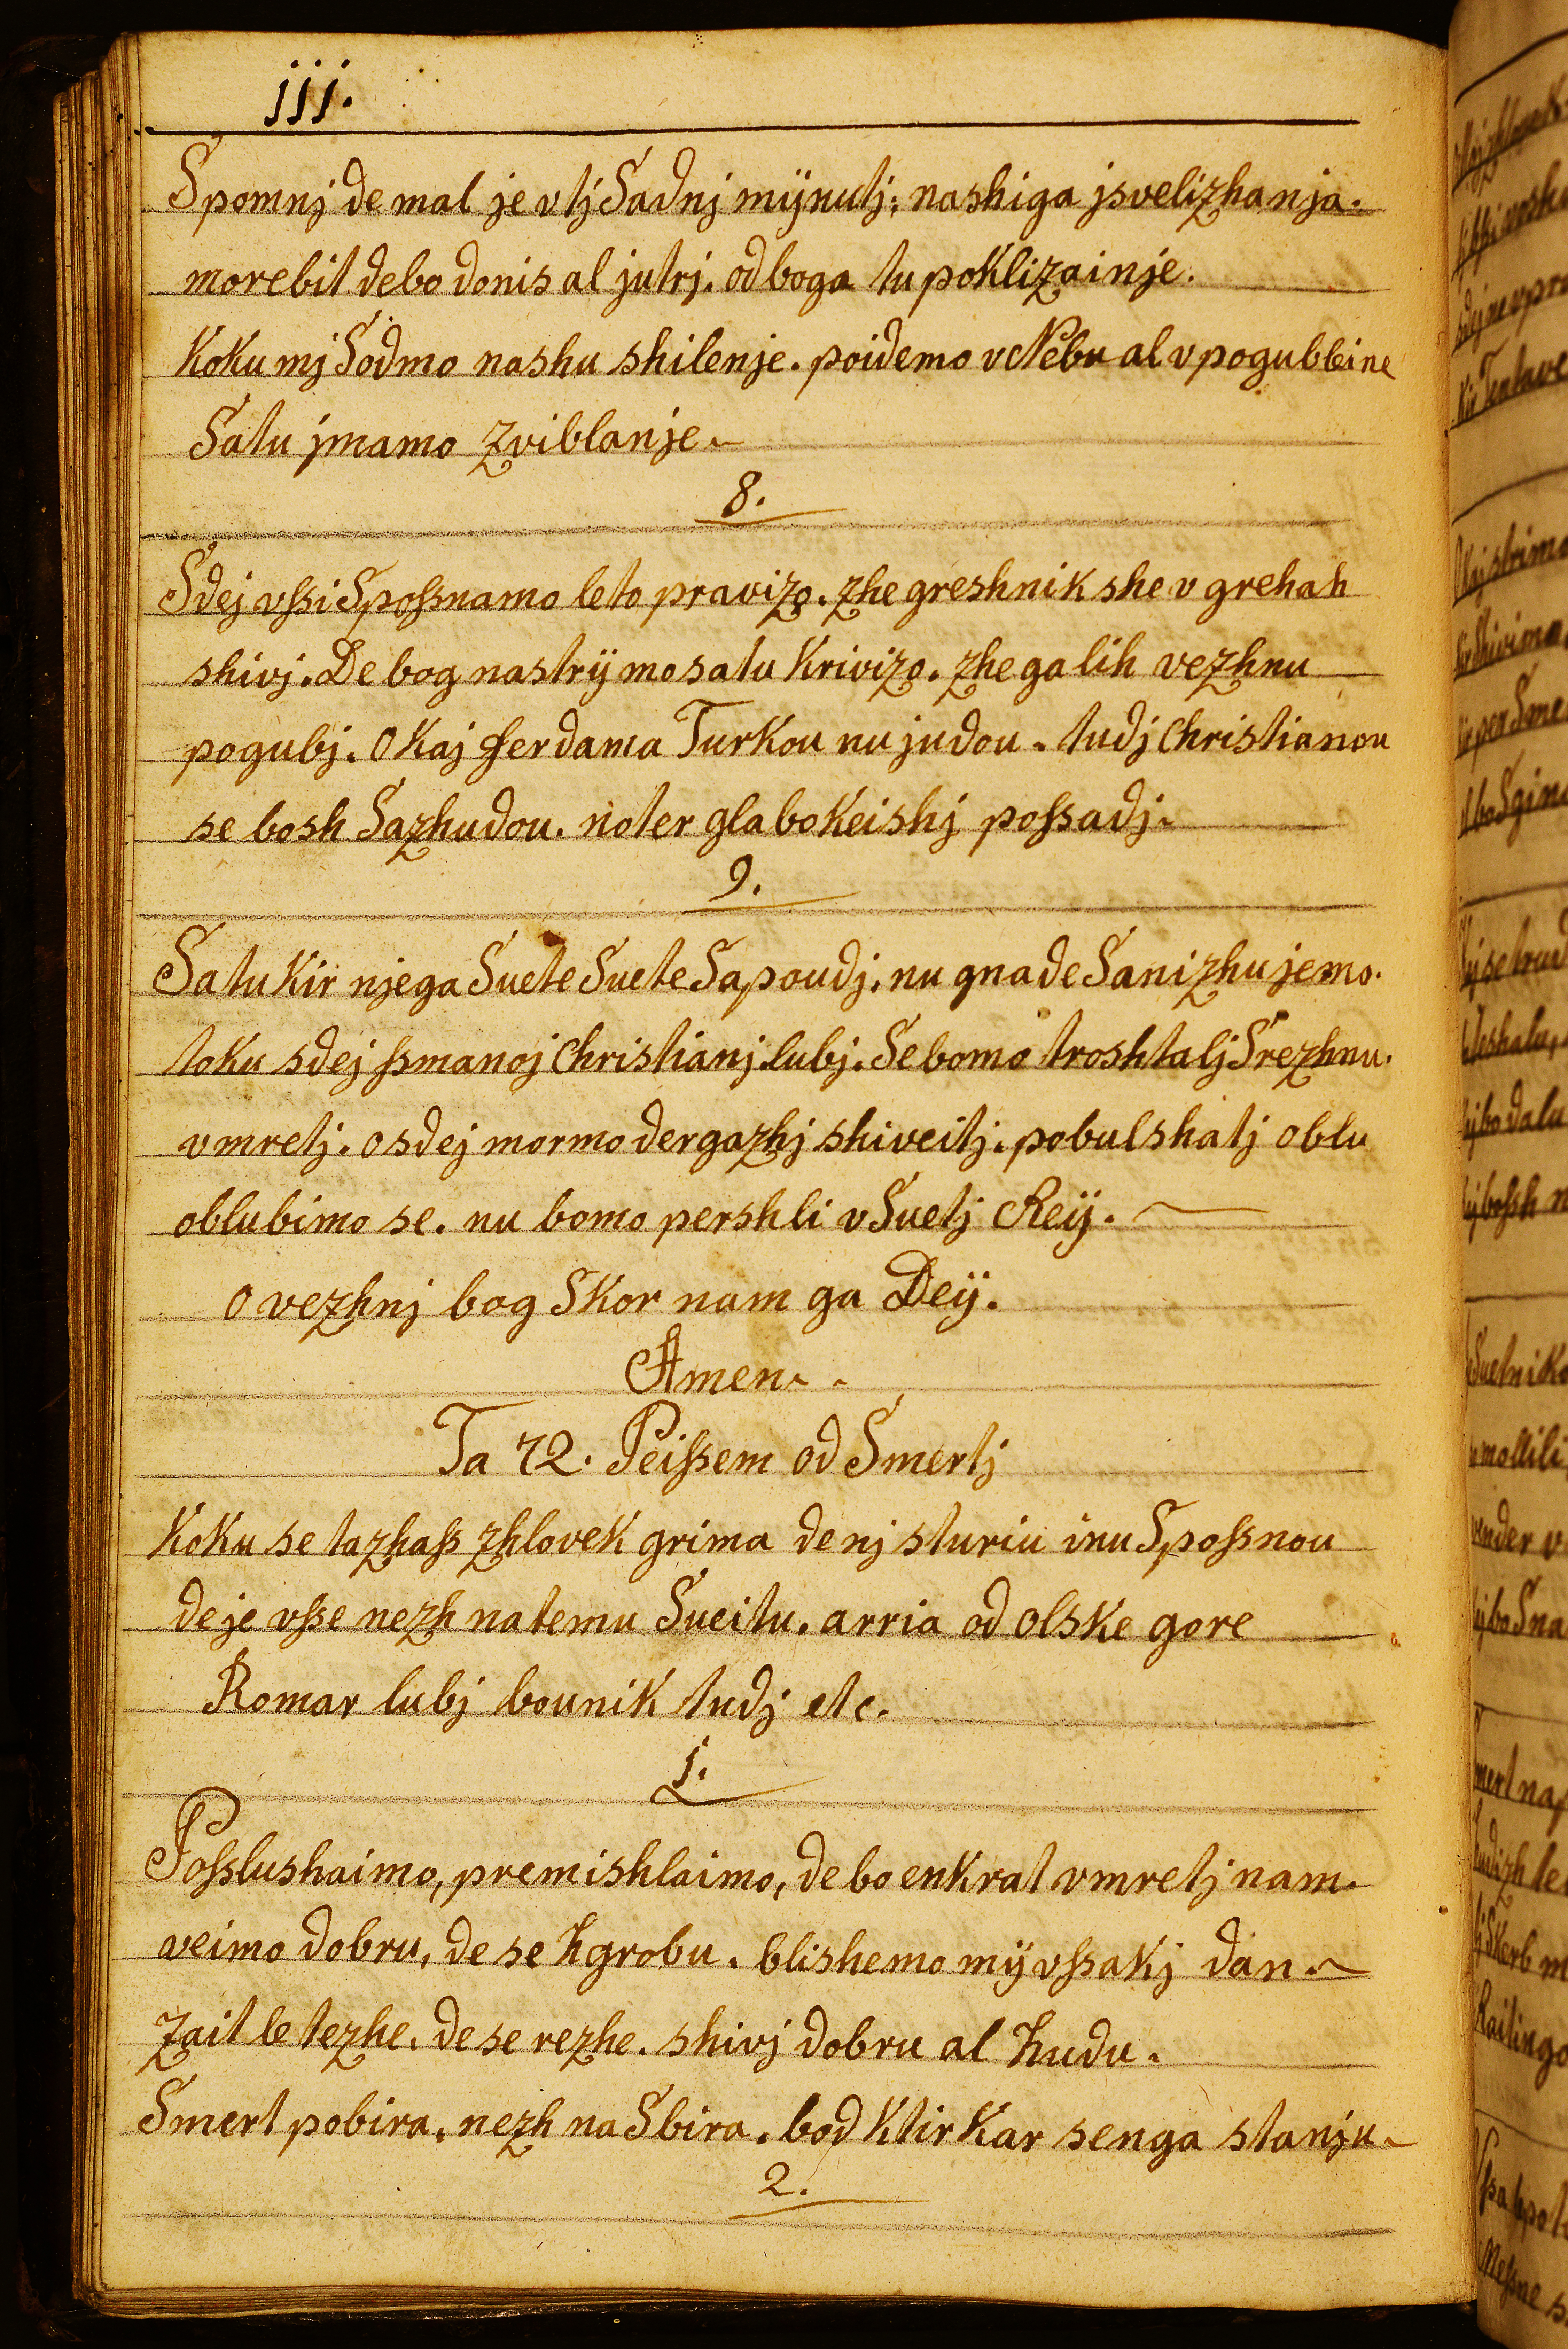 jjj.
Spomnj de mal je vtj Sadnj mÿnutj; nashiga jsvelizhanja.
morebit debo donis al jutrj. od boga tu poklizainje.
Koku mj Sodmo nashu shilenje. poidemo v Nebu al v pogubleine
Satu jmamo zviblanje
8.
Sdej vſsi Spoſsnamo leto pravizo. zhe greshnik she v grehah
shivj. De bog nastrÿ mo satu krivizo. zhe ga lih vezhnu
pogubj. O kaj ferdama Turkou nu judou. tudj Christianou
se bosh Sazhudou. noter glabokeishj poſsadj.
9.
Satu kir njega Suete Suete Sapoudj. nu gnade Sanizhujemo.
toku sdej ſsmanoj Christianj lubj. Se bomo troshtalj Srezhnu.
vmretj. o sdej mormo dergazhj shiveitj. pobulshatj oblu
oblubimo se. nu bomo pershli v Suetj Reÿ.
O vezhnj bog Skor nam ga Deÿ.
Amen
Ta 72. Peiſsem od Smertj
Koku se tazhaſs zhlovek grima de nj sturiu inu Spoſsnou
de je vſse nezh na temu Sueitu. arria od olske gore
Romar lubj bounik tudj etc.
1.
Poſslushaimo, premishlaimo, de bo enkrat vmretj nam.
veimo dobru, de se h grobu. blishemo mÿ vſsakj dan.
Zait le tezhe. de se rezhe. shivj dobru al hudu.
Smert pobira. nezh na Sbira. bod ktir kar senga stanju
2.